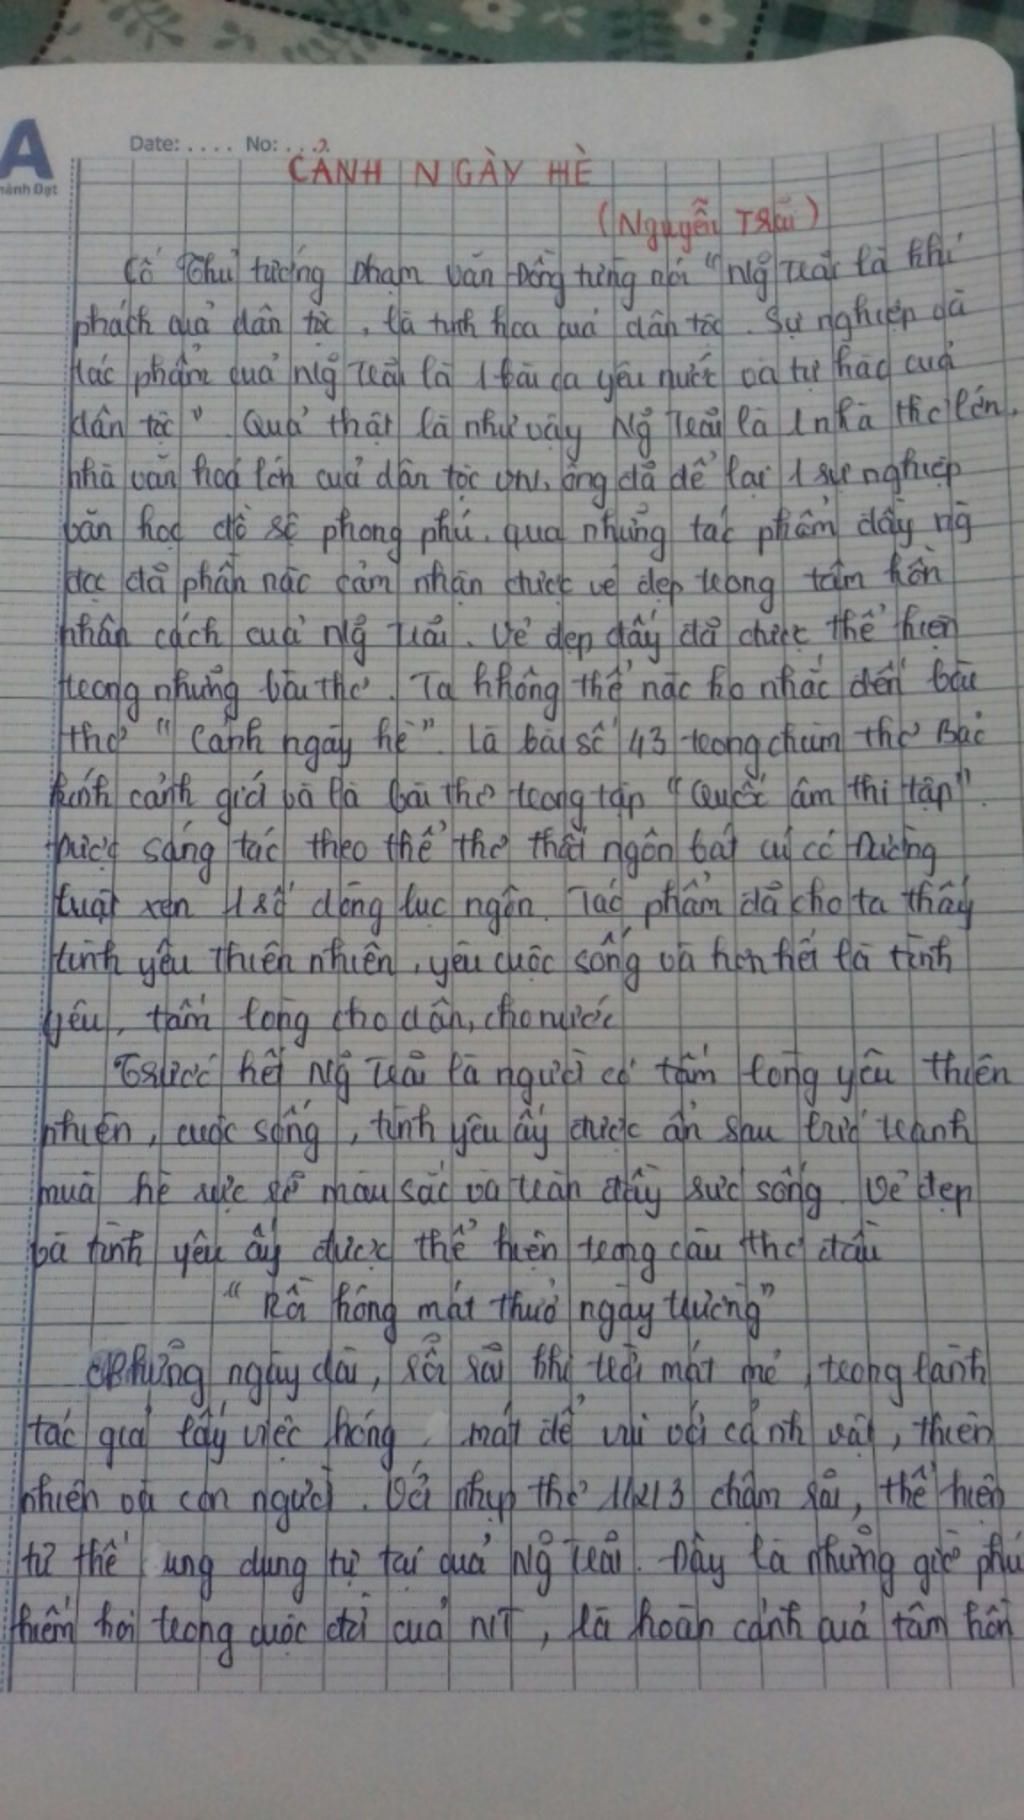 A
Thành Đạt
Date: .... No: ....
CẢNH NGÀY HÈ
(Nguyễn Trãi)
Cố Thủ tướng Phạm Văn Đồng từng nói "Ng̃ Trãi là khí
phách quả dân tộc, là tinh hoa quả dân tộc. Sự nghiệp và
tác phẩm quả Ng̃ Trãi là 1 bài ca yêu nước và tự hào cuả
dân tộc". Quả thật là như vậy Ng̃ Trãi là 1 nhà thơ lớn,
nhà văn hoá lớn cuả dân tộc VN, ông đã để lại 1 sự nghiệp
văn học đồ sộ phong phú. qua những tác phẩm đấy ng̀
đọc đã phần nào cảm nhận được vẻ đẹp trong tâm hồn
nhân cách cuả Ng̃ Trãi. Vẻ đẹp đấy đã được thể hiện
trong những bài thơ. Ta không thể nào ko nhắc đến bài
thơ "Cảnh ngày hè". Là bài số 43 trong chùm thơ Bảo
kính cảnh giới và là bài thơ trong tập "Quốc âm thi tập".
Được sáng tác theo thể thơ thất ngôn bát cú có Đường
luật xen 1 số dòng lục ngôn. Tác phẩm đã cho ta thấy
tình yêu thiên nhiên, yêu cuộc sống và hơn hết là tình
yêu, tấm lòng cho dân, cho nước
Trước hết Ng̃ Trãi là người có tấm lòng yêu thiên
nhiên, cuộc sống, tình yêu ấy được ẩn sau bức tranh
muà hè rực rỡ màu sắc và tràn đầy sức sống. Vẻ đẹp
và tình yêu ấy được thể hiện trong câu thơ đầu
"Rồi hóng mát thuở ngày trường"
Những ngày dài, rỗi rãi khí trời mát mẻ, trong lành
tác giả lấy việc hóng mát để vui với cảnh vật, thiên
nhiên và con người. Với nhịp thơ 1/2/3 chậm rãi, thể hiện
tư thế ung dung tự tại quả Ng̃ Trãi. Đây là những giờ phút
hiếm hoi trong cuộc đời cuả NT, là hoàn cảnh quả tâm hồn